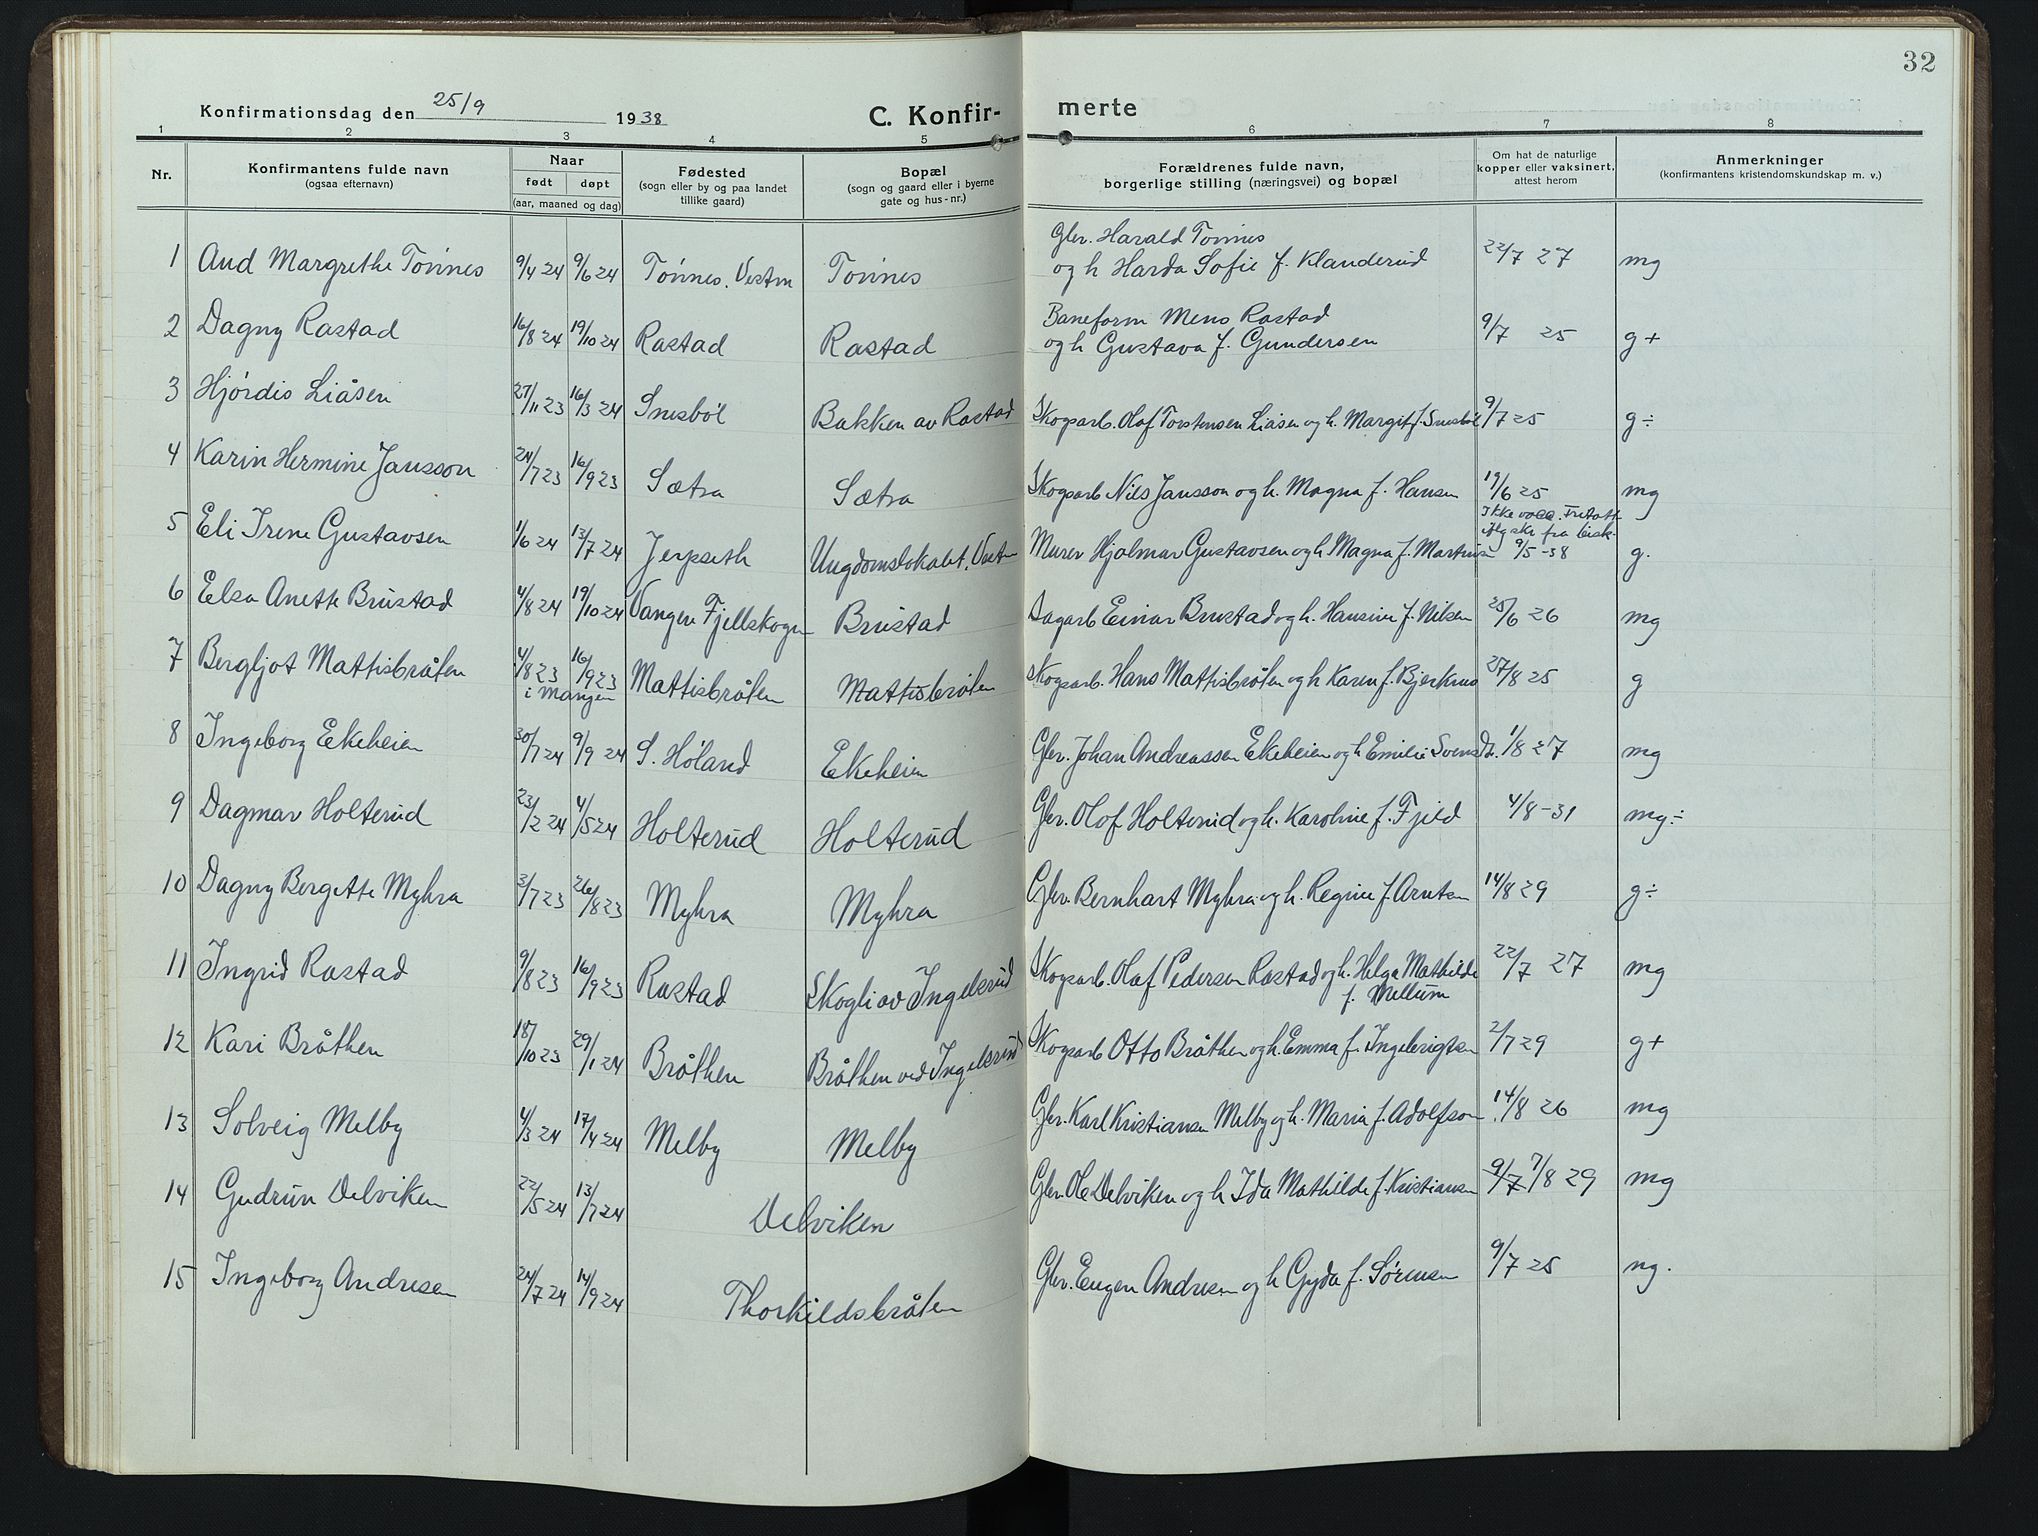 32
Konfirmationsdag den 25/9 1938 C. Konfir- merte
1 2 3 4 5 6 7 8
Nr. Konfirmantens fulde navn (ogsaa efternavn) Naar født døpt (aar, maaned og dag) Fødested (sogn eller by og paa landet tillike gaard) Bopæl (sogn og gaard eller i byerne gate og hus-nr.) Forældrenes fulde navn, borgerlige stilling (næringsvei) og bopæl Om hat de naturlige kopper eller vaksinert, attest herom Anmerkninger (konfirmantens kristendomskundskap m. v.)
1 Aud Margrethe Tønnes 9/4 24 9/6 24 Tønnes, Vestm Tønnes Gbr. Harald Tønnes og h Harda Sofie f. Klanderud 22/7 27 mg
2 Dagny Rastad 16/8 24 19/10 24 Rastad Rastad Baneform Mens Rastad og h Gustava f. Gundersen 9/7 25 g+
3 Hjørdis Liåsen 27/11 23 16/3 24 Snesbøl Bakken av Rastad Skogsarb. Olaf Torstensen Liåsen og h. Margit f. Snesbøl 9/7 25 g÷
4 Karin Hermine Jansson 24/7 23 16/9 23 Sætra Sætra Skogsarb Nils Jansson og h. Magna f. Hansen 19/6 25 mg
5 Eli Irene Gustavsen 1/6 24 13/7 24 Jerpseth Ungdomslokalet, Vestm Murer Hjalmar Gustavsen og h Magna f. Martinsen Ikke vacc. fra bisk. 9/5-38 g.
6 Elsa Anette Brustad 4/8 24 19/10 24 Vangen Fjellskogen Brustad Sagarb Einar Brustad og h. Hansine f. Nilsen 25/6 26 mg
7 Bergljot Mattisbråten 4/8 23 16/9 23 i Mangen Mattisbråten Mattisbråten Skogsarb. Hans Mattisbråten og h Karen f. Bjerknes 27/8 25 g
8 Ingeborg Ekeheien 30/7 24 9/9 24 S. Høland Ekeheien Gbr. Johan Andreassen Ekeheien og h Emilie Svensdt. 1/8 27 mg
9 Dagmar Holterud 23/2 24 4/5 24 Holterud Holterud Gbr. Olof Holterud og h. Karoline f. Fjeld 4/8-31 mg÷
10 Dagny Bergette Myhra 3/7 23 26/8 23 Myhra Myhra Gbr. Bernhart Myhra og h. Regine f. Arntsen 14/8 29 g÷
11 Ingrid Rastad 9/8 23 16/9 23 Rastad Skogli av Ingelsrud Skogsarb. Olaf Pedersen Rastad og h. Helga Mathilde f. Mellum 22/7 27 mg
12 Kari Bråthen 18/10 23 29/1 24 Bråthen Bråthen ved Ingelsrud Skogsarb Otto Bråthen og h. Emma f. Ingebrigtsen 2/7 29 g+
13 Solveig Melby 4/3 24 17/4 24 Melby Melby Gbr. Karl Kristiansen Melby og h. Maria f. Adolfson 14/8 26 mg
14 Gudrun Delviken 22/5 24 13/7 24 Delviken Gbr. Ole Delviken og h Ida Mathilde f. Kristiansen 9/7 7/8 29 mg
15 Ingeborg Andresen 24/7 24 14/9 24 Thorkildsbråten Gbr. Eugen Andresen og h Gyda f. Sørensen 9/7 25 ng.